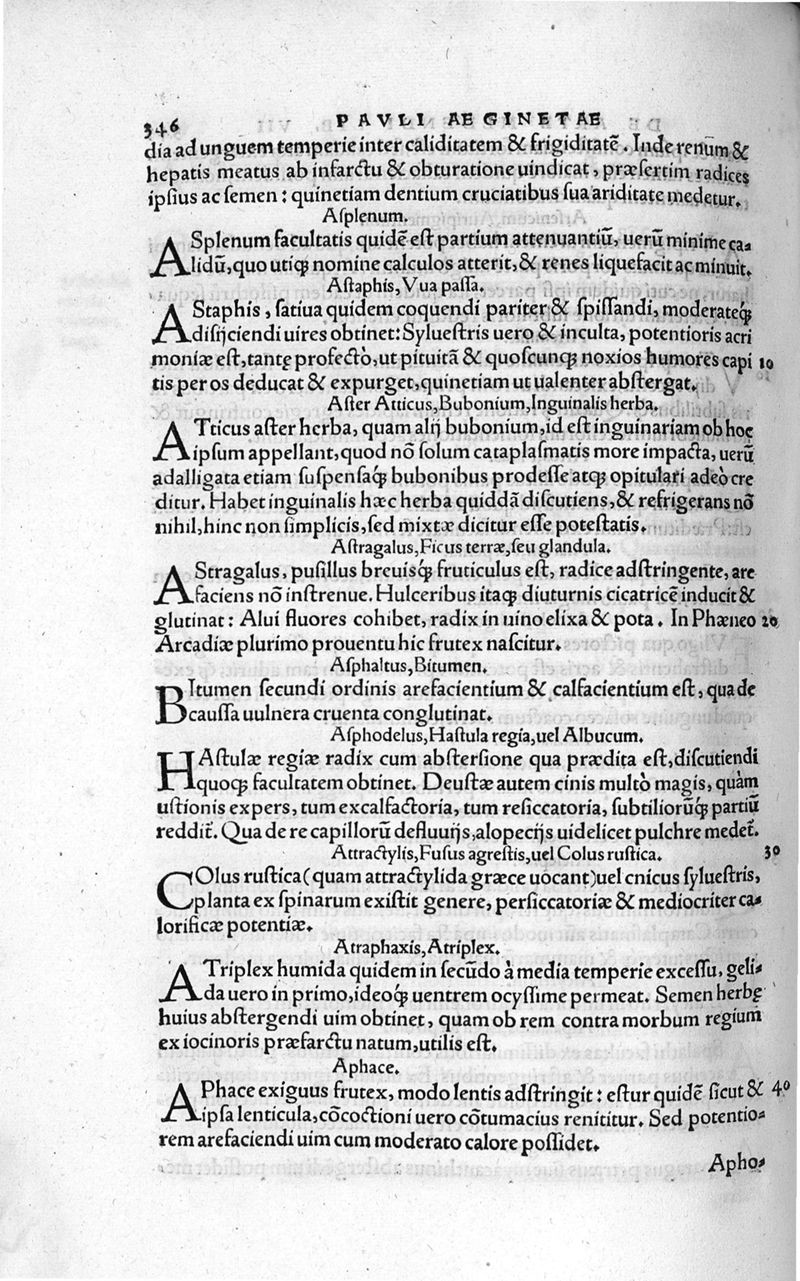 346 PAVLI AEGINETAE
dia ad unguem temperie inter caliditatem & frigiditatẽ. Inde renũm &
hepatis meatus ab infarctu & obturatione uindicat, præsertim radices
ipsius ac semen: quinetiam dentium cruciatibus sua ariditate medetur.
Asplenum.
ASplenum facultatis quidẽ est partium attenuantiũ, uerũ minime ca-
lidũ, quo utiqꝫ nomine calculos atterit, & renes liquefacit ac minuit.
Astaphis, Vua passa.
AStaphis, satiua quidem coquendi pariter & spissandi, moderateqꝫ
disijciendi uires obtinet: Syluestris uero & inculta, potentioris acri
moniæ est, tantę profectò, ut pituitã & quoscunqꝫ noxios humores capi 10
tis per os deducat & expurget, quinetiam ut ualenter abstergat.
Aster Atticus, Bubonium, Inguinalis herba.
ATticus aster herba, quam alij bubonium, id est inguinariam ob hoc
ipsum appellant, quod nõ solum cataplasmatis more impacta, uerũ
adalligata etiam suspensaqꝫ bubonibus prodesse atqꝫ opitulari adeò cre
ditur. Habet inguinalis hæc herba quiddã discutiens, & refrigerans nõ
nihil, hinc non simplicis, sed mixtæ dicitur esse potestatis.
Astragalus, Ficus terræ, seu glandula.
AStragalus, pusillus breuisqꝫ fruticulus est, radice adstringente, are
faciens nõ instrenue. Hulceribus itaqꝫ diuturnis cicatricẽ inducit &
glutinat: Alui fluores cohibet, radix in uino elixa & pota. In Phæneo 20
Arcadiæ plurimo prouentu hic frutex nascitur.
Asphaltus, Bitumen.
BItumen secundi ordinis arefacientium & calfacientium est, qua de
caussa uulnera cruenta conglutinat.
Asphodelus, Hastula regía, uel Albucum.
HAstulæ regiæ radix cum abstersione qua prædita est, discutiendi
quoqꝫ facultatem obtinet. Deustæ autem cinis multò magis, quàm
ustionis expers, tum excalfactoria, tum resiccatoria, subtiliorũqꝫ partiũ
reddit̃. Qua de re capillorũ defluuijs, alopecijs uidelicet pulchre medet̃.
Attractylis, Fusus agrestis, uel Colus rustica. 30
COlus rustica (quam attractylida græce uocant) uel cnicus syluestris,
planta ex spinarum existit genere, persiccatoriæ & mediocriter ca-
lorificæ potentiæ.
Atraphaxis, Atriplex.
ATriplex humida quidem in secũdo à media temperie excessu, geli-
da uero in primo, ideoqꝫ uentrem ocyssime permeat. Semen herbę
huius abstergendi uim obtinet, quam ob rem contra morbum regium
ex iocinoris præfarctu natum, utilis est.
Aphace.
APhace exiguus frutex, modo lentis adstringit: estur quidẽ sicut & 40
ipsa lenticula, cõcoctioni uero cõtumacius renititur. Sed potentio-
rem arefaciendi uim cum moderato calore possidet.
Apho-